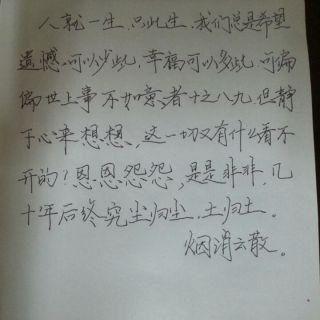 人就一生，只此生，我们总是希望
遗憾，可以少些，幸福可以多些，可偏
偏世上事不如意者十之八九，但静
下心来想想，这一切又有什么看不
开的？恩恩怨怨，是是非非，几
十年后终究尘归尘，土归土。
烟消云散。